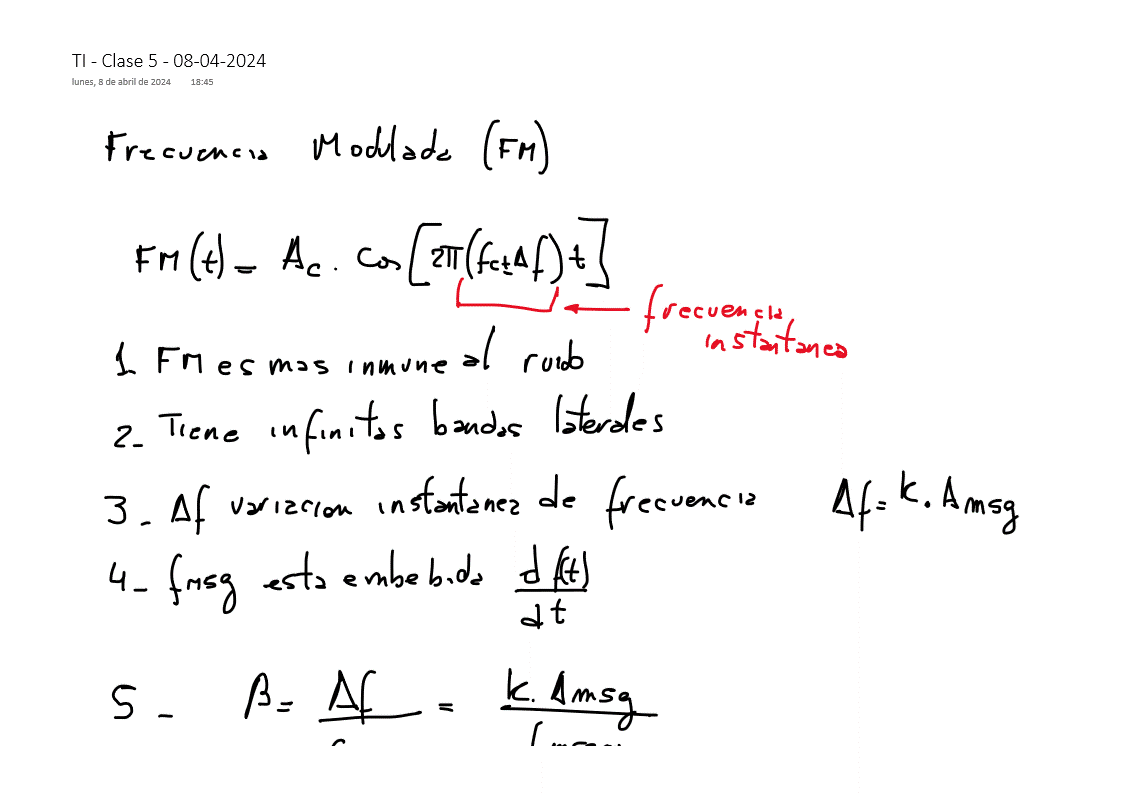 TI - Clase 5 - 08-04-2024
lunes, 8 de abril de 2024 18:45
Frecuencia Modulada (FM)
FM(t) = Ac . Cos[2π(fc±Δf)t]
frecuencia
instantanea
1 FM es mas inmune al ruido
2- Tiene infinitas bandas laterales
3- Δf variacion instantanea de frecuencia Δf = k. Amsg
4- fmsg esta embebida d f(t)/dt
5- β = Δf/ = k. Amsg/